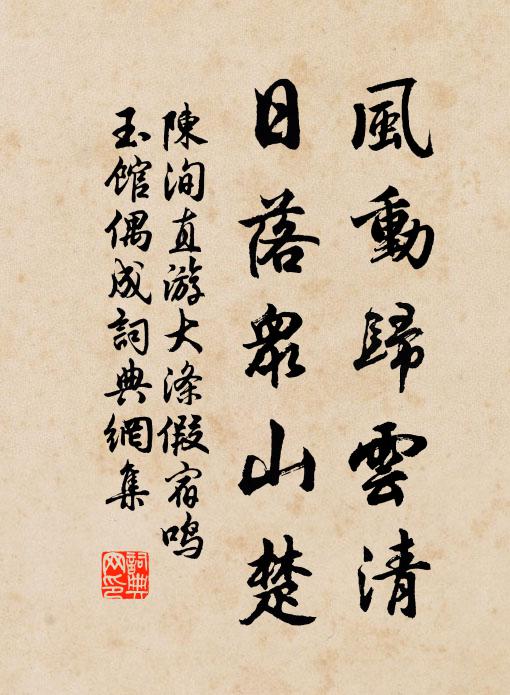 風動歸雲清
日落衆山楚
陳洵直游大滌假宿鸣
玉馆偶成詞典網集
詞典
网印